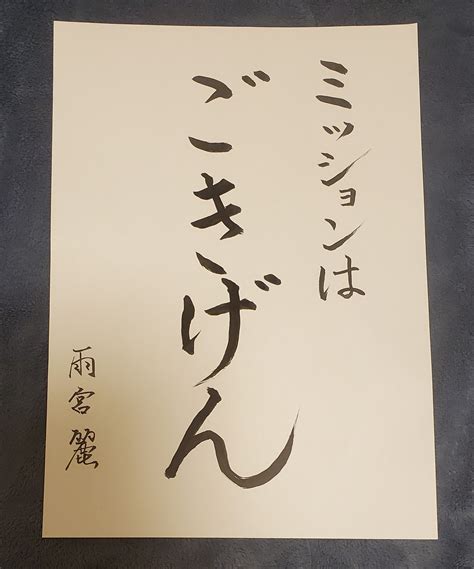 ミッションは
ごきげん
雨宮 麗